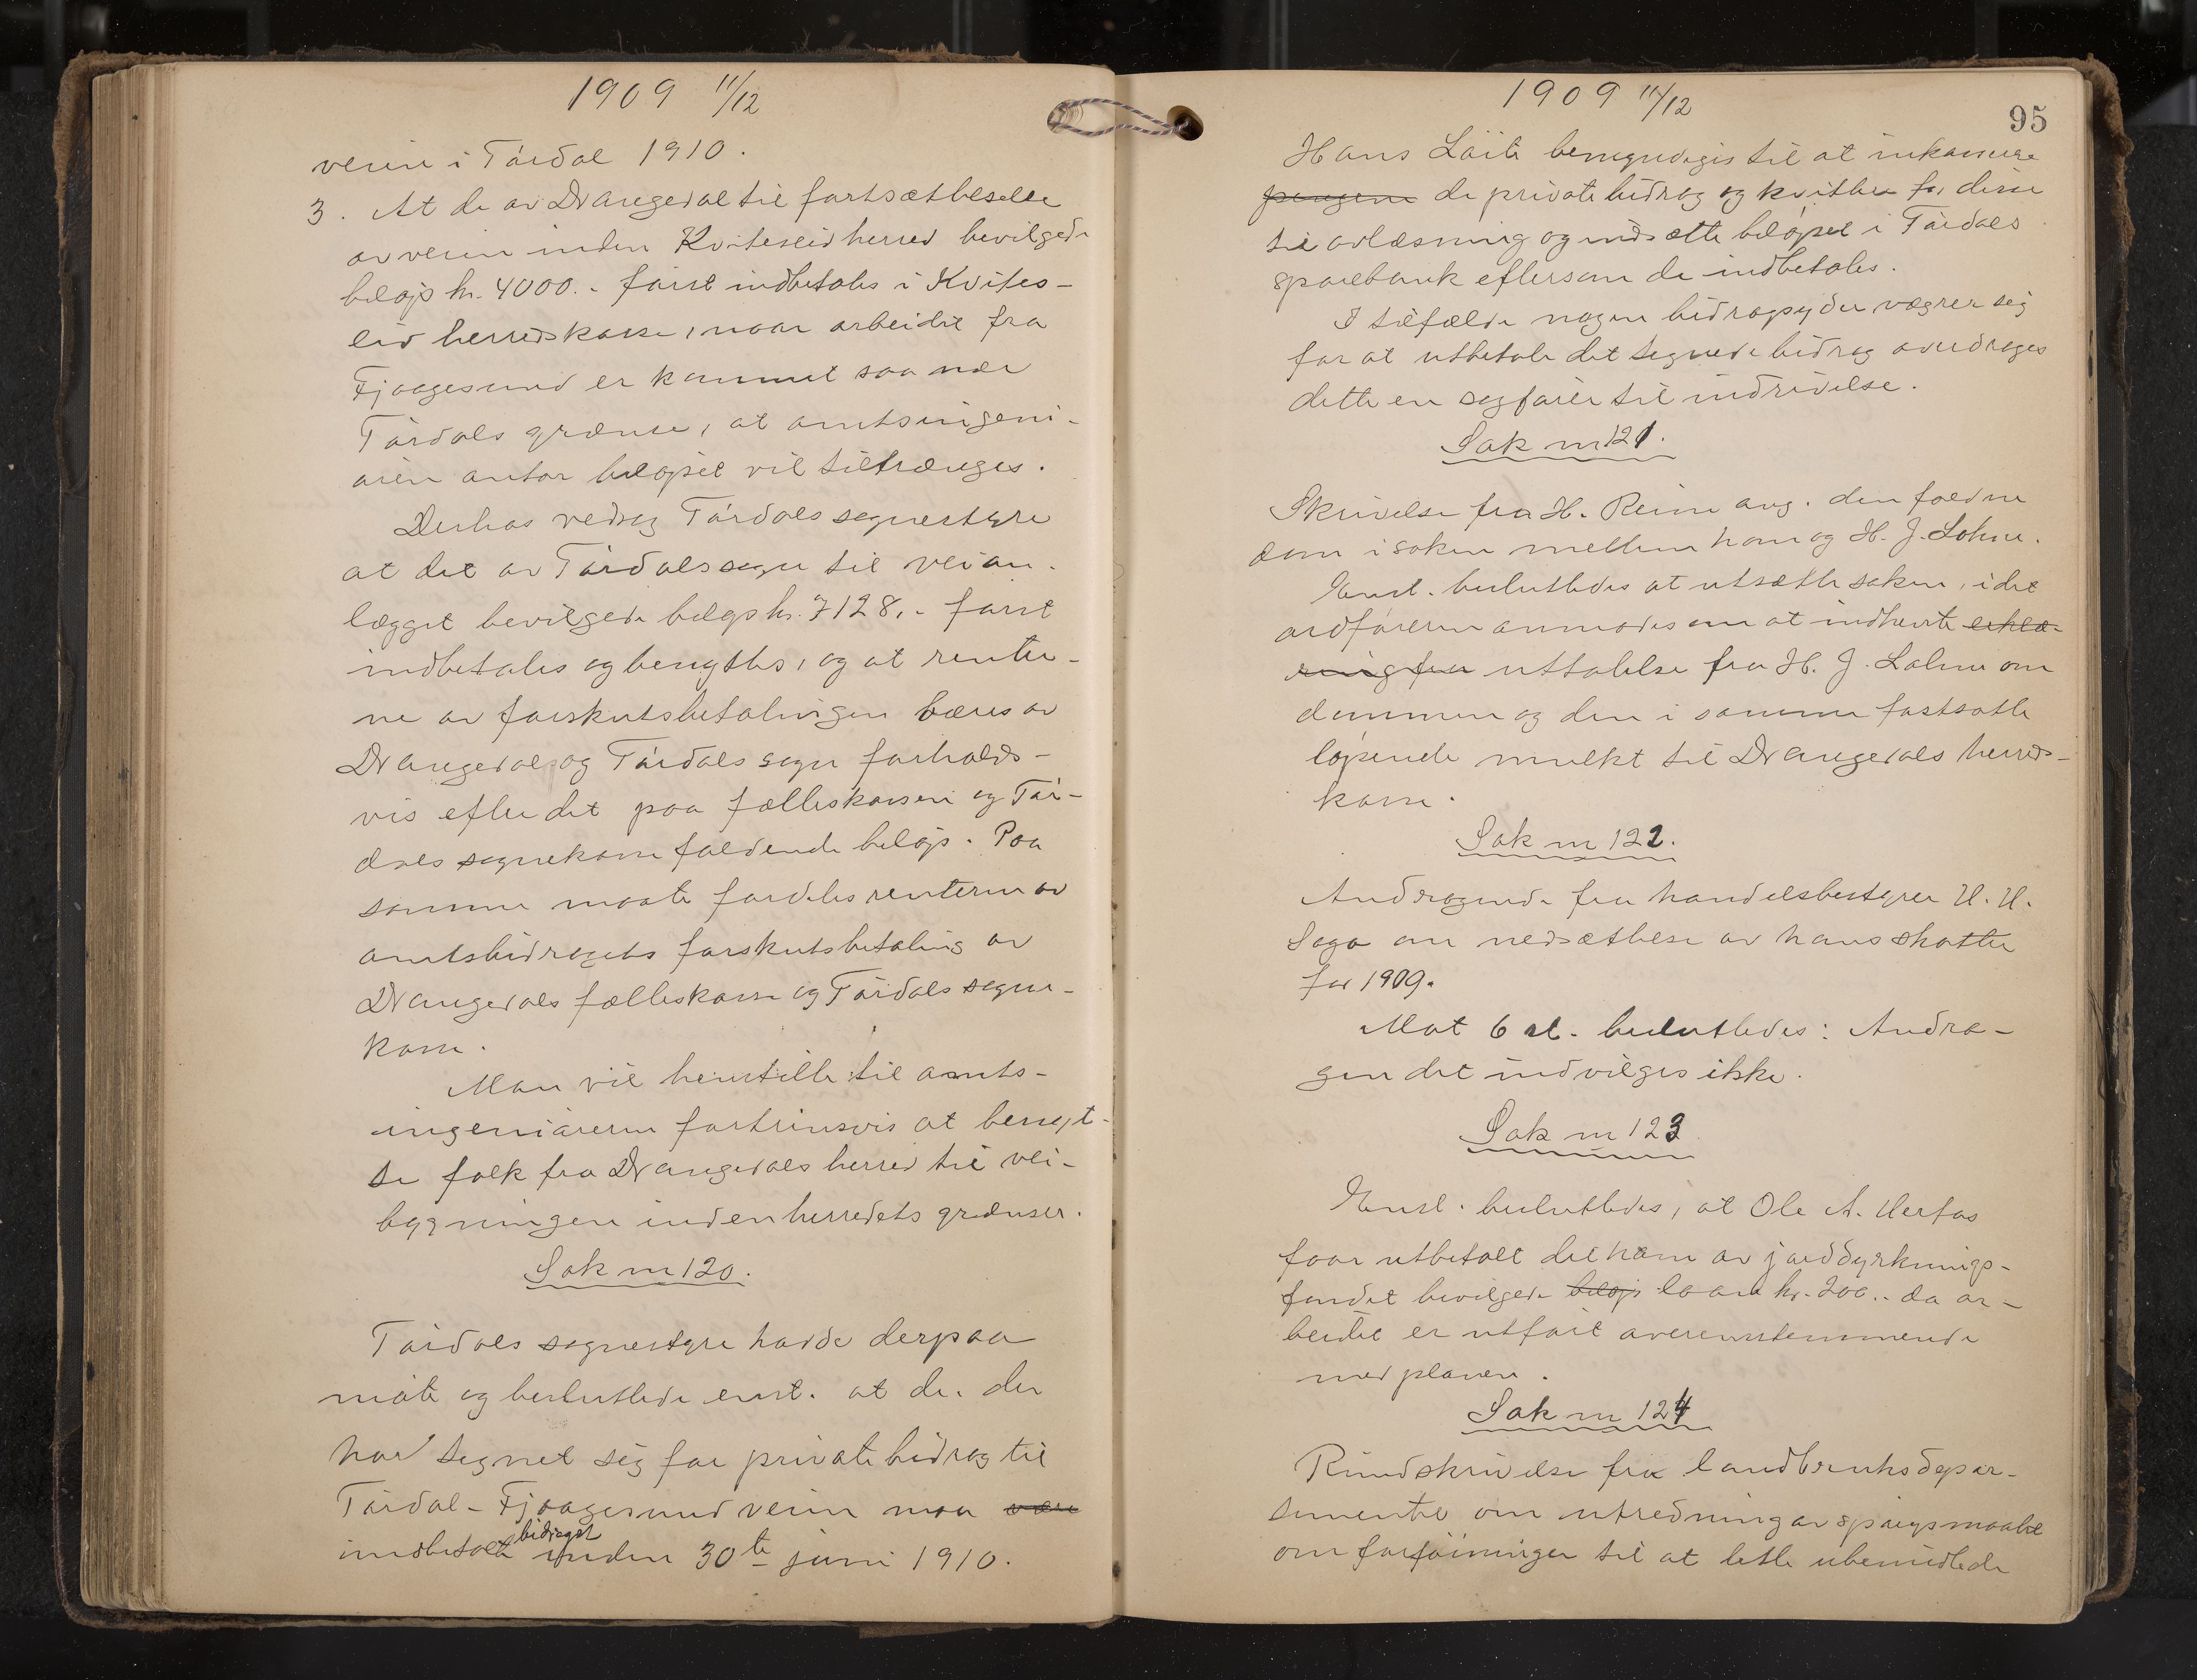 1909 11/12
veien i Tørdal 1910.
3. At de av Drangedal til fortsættelse
av veien inden Kviteseid herred bevilgede
beløp kr. 4000.- først indbetales i Kvites-
eid herredskasse, naar arbeidet fra
Fjaagesund er kommet saa nær
Tørdals grænse, at amtsingeni-
øren antar beløpet vil tiltrænges.
Derhos vedtog Tørdals sognestyre
at det av Tørdals sogn til veian-
lægget bevilgede beløp kr. 7128,- først
indbetales og benyttes, og at renter-
ne av forskutsbetalingen bæres av
Drangedal og Tørdals sogn forholds-
vis efter det paa fælleskassen og Tør-
dals sognekasse faldende beløp. Paa
samme maate fordeles renterne av
amtsbidragets forskutsbetaling av
Drangedals fælleskasse og Tørdals sogne-
kasse.
Man vil henstille til amts-
ingeniøren fortrinsvis at benyt-
te folk fra Drangedals herred til vei-
bygningen inden herredets grænser.
Sak nr 120.
Tørdals sognestyre hadde derpaa
møte og besluttede enst. at de, der
har tegnet sig for private bidrag til
Tørdal-Fjaagesund veien maa være
bidraget
indbetalt inden 30te juni 1910.
1909 11/12
95
Hans Løite bemyndiges til at inkassere
pengene de private bidrag og kvittere for disse
til avlæsning og indsætte beløpet i Tørdals
sparebank eftersom de indbetales.
I tilfælde nogen bidragsyder vægrer sig
for at utbetale det tegnede bidrag overdrages
dette en sagfører til inddrivelse.
Sak nr 121.
Skrivelse fra H. Reim ang. den faldne
dom i saken mellem ham og H. J. Lohne.
Enst. besluttedes at utsætte saken, idet
ordføreren anmodes om at indhente erklæ-
ring fra uttalelse fra H. J. Lohne om
dommen og den i samme fastsatte
løpende mulkt til Drangedals herreds-
kasse.
Sak nr 122.
Andragende fra handelsbestyrer H. H.
Saga om nedsættelse av hans skatter
for 1909.
Mot 6 st. besluttedes: Andra-
gendet indvilges ikke.
Sak nr 123
Enst. besluttedes, at Ole A. Herfos
faar utbetalt det ham av jorddyrknings-
fondet bevilgede beløp laan kr. 200.- da ar-
beidet er utført overensstemmende
med planen.
Sak nr 124
Rundskrivelse fra landbruksdepar-
tementet om utredning av spørgsmaalet
om forføininger til at lette ubemidlede